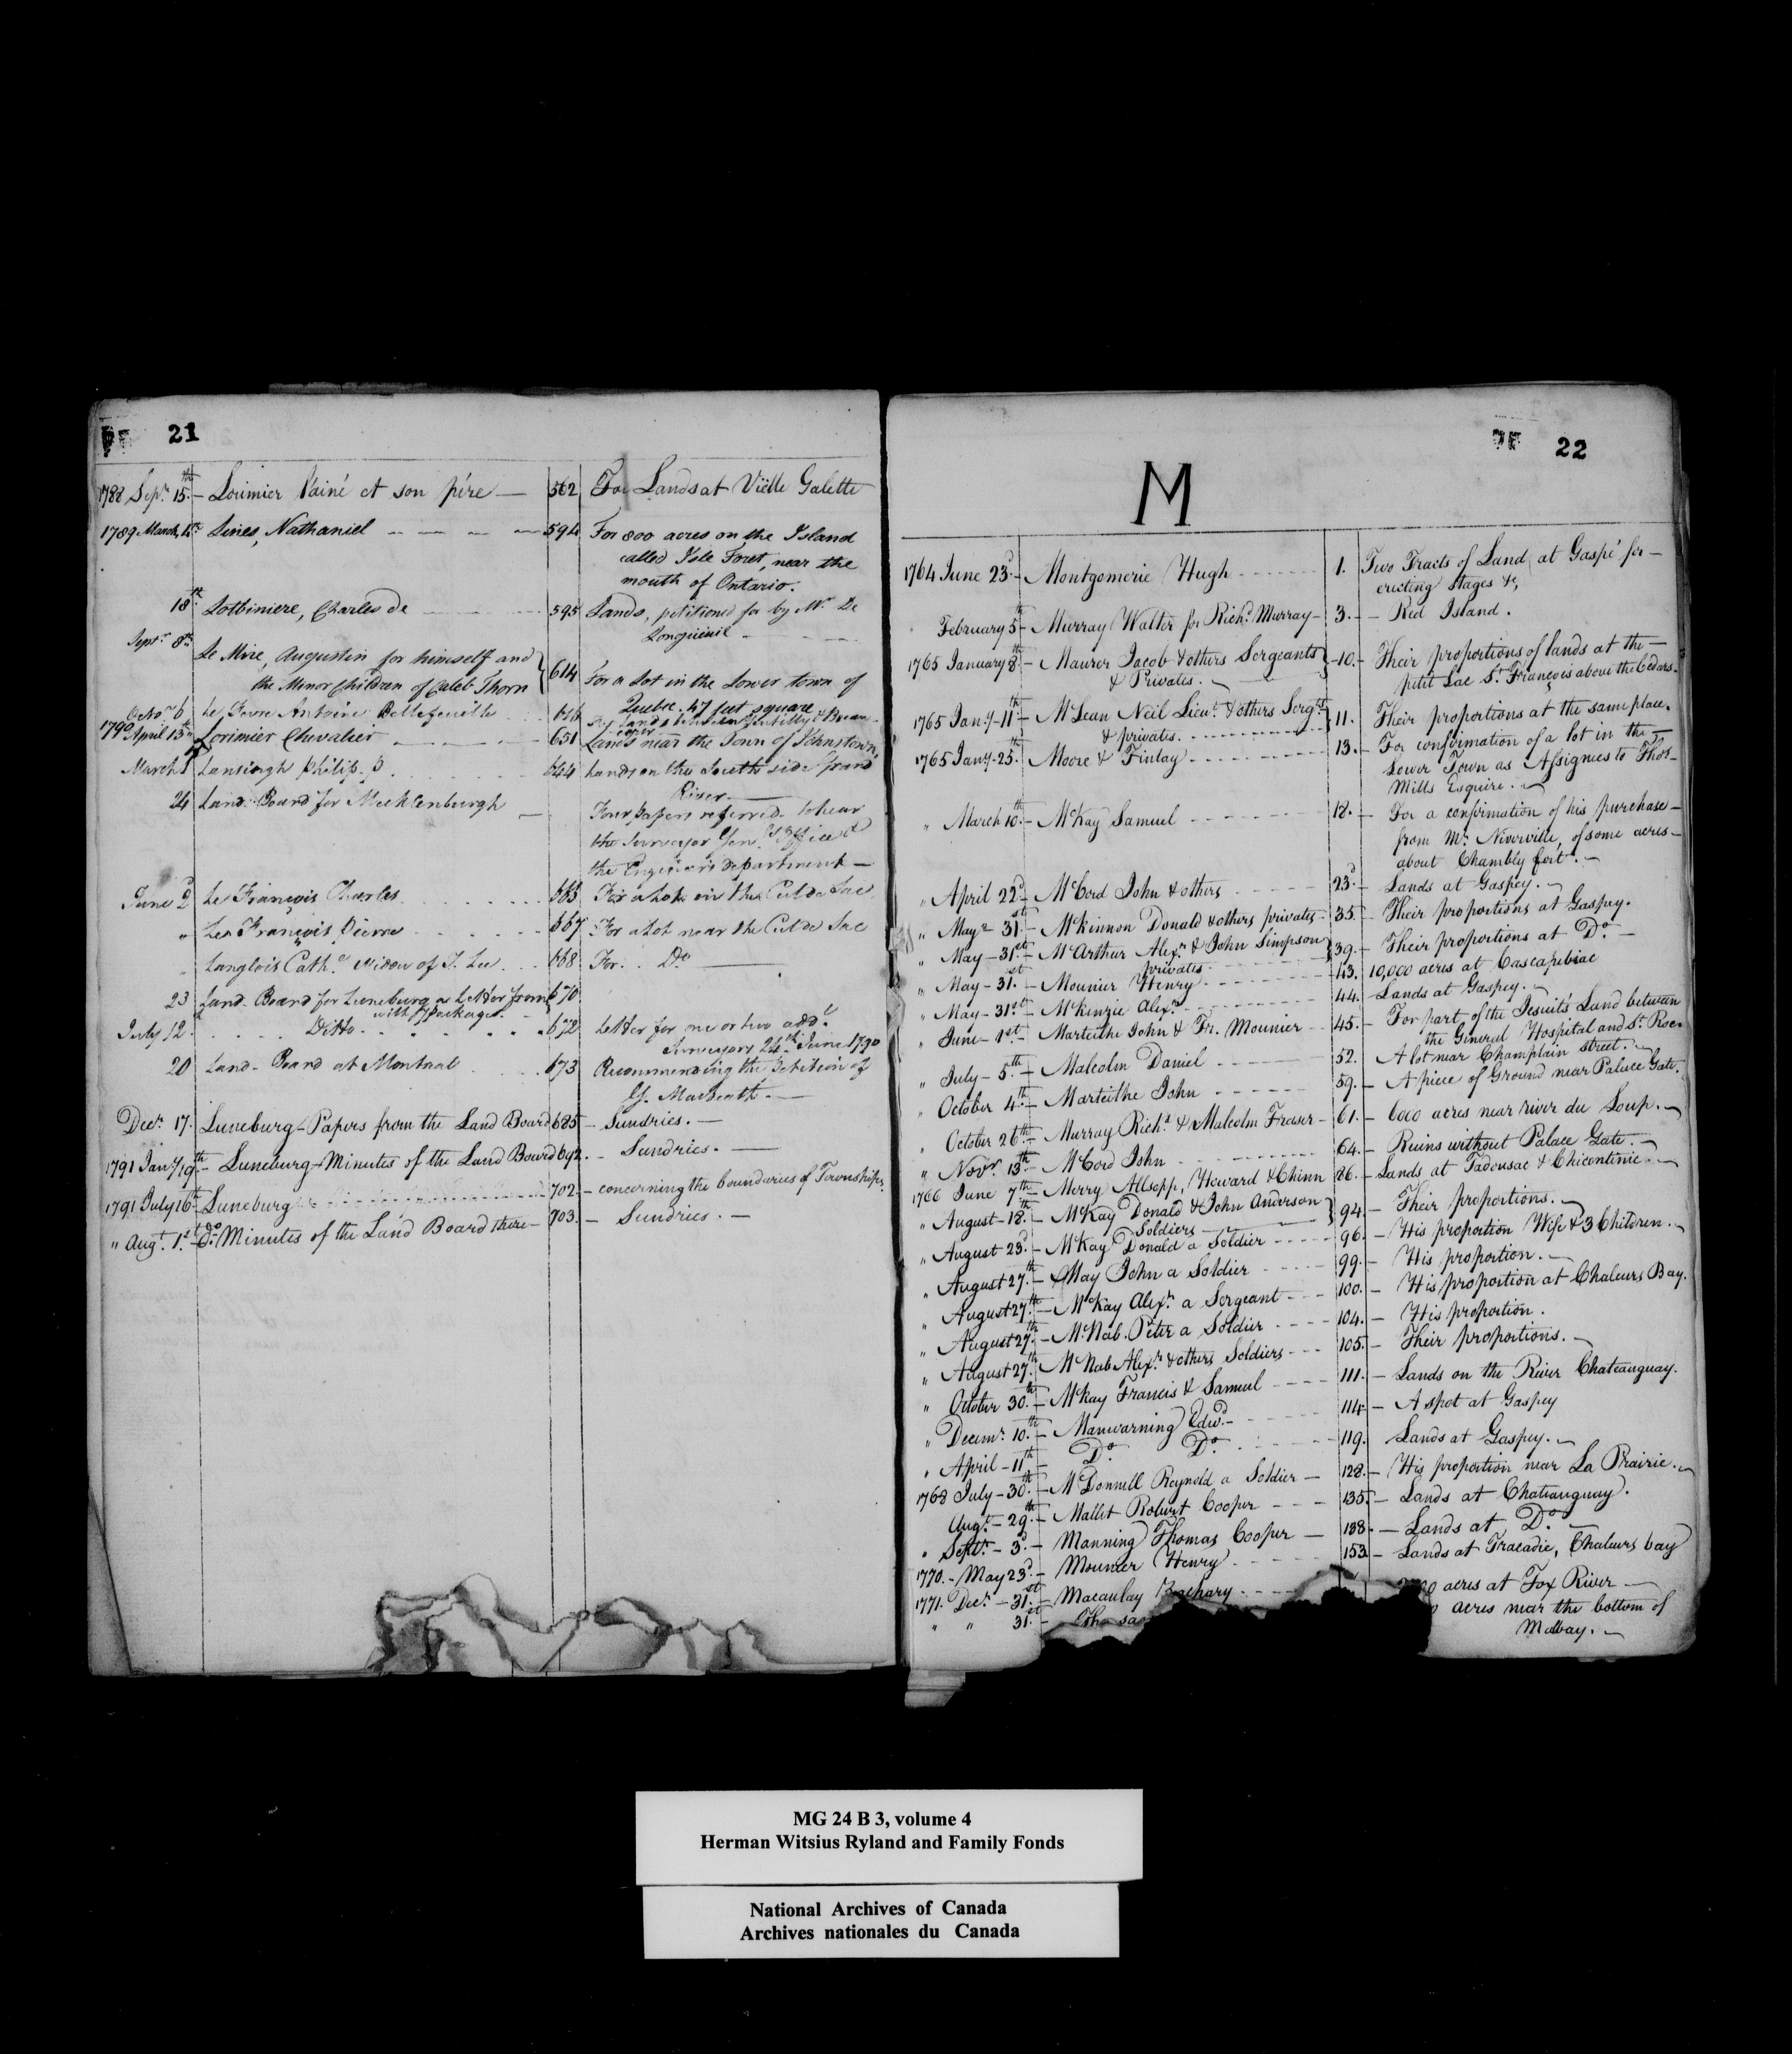 21
1788 Sepr. 15th. – Lorimier l'ainé et son pére — 562 For Lands at Viëlle Galette
1789 March 4th. Lines, Nathaniel — — — — 594 For 800 acres on the Island
called Isle Foret, near the
mouth of Ontario.
18th Lotbiniere, Charles de — — — 595 Lands, petitioned for by Mr. De
Longueuil — — —
Septr. 8th.
Le Mire, Augustin for himself and
the Minor Children of Caleb Thorn } 614 For a Lot in the Lower town of
Quebec. 47 feet square
Octor. 6 Le Fevre Antoine Bellefeuille
1790 April 15th Lorimier Chevalier — — — 651 Lands near the Town of Johnstown,
March 1 Lansingh Philip. P. 644 Lands on the South side Grand
River —
24 Land Board for Mecklenburgh — Four papers referred to hear
the Surveyor Genl's Office &
the Engineers department —
June 2d Le François Charles 665 For a Lot in the Cul de Sac
" Les François Pierre 667 For a Lot near the Cul de Sac
" Langlois Cathe. Widow of J. Lee 668 For. . Do ———
23 Land Board for Luneburg a Letter from 670
with 7 packages. –
July 12. Ditto 672 Letter for one or two addl.
Surveyors 24th. June 1790
20 Land-Board at Montreal 673 Recommending the Petition of
—
Decr. 17. Luneburg – Papers from the Land Board 685 – Sundries. —
1791 Jany 19th. – Luneburg – Minutes of the Land Board 692. – Sundries. —
1791 July 16th. Luneburg 702. – concerning the boundaries of Townships.
" Augt. 1st. – do. Minutes of the Land Board there – 703. – Sundries. —
22
M
1764 June 23d. – Montgomerie Hugh 1. Two Tracts of Land at Gaspé for –
erecting Stages &c,
February 5th – Murray Walter for Richd. Murray – 3. – Red Island.
1765 January 8th – Maurer Jacob & others Sergeants
& Privates. } 10. – Their proportions of lands at the –
petit Lac St. François above the Cedars.
1765 Jany – 11th. – McLean Neil Lieut. & others Sergts.
& privates. } 11. Their proportions at the same place.
1765 Jany. 25th. Moore & Finlay 13. – For confirmation of a lot in the –
Lower Town as Assignees to Thos. –
Mills Esquire. –
" March 10th. – McKay Samuel 18. – For a confirmation of his purchase –
from Mr. Niverville, of some acres –
about Chambly fort. –
" April 22d – McCord John & others 23d. – Lands at Gaspey. –
" May 31st. – McKinnon Donald & others privates – 35. – Their proportions at Gaspey.
" May – 31st – McArthur Alexr. & John Simpson
privates } 39. – Their proportions at Do. –
" May – 31st. – Mounier Henry 43. 10,000 acres at Cascapibiac
" May – 31st. – McKinzie Alexr. 44. – Lands at Gaspey. –
" June – 1st. – Marteilhe John & Fr. Mounier 45. – For part of the Jesuit's Land between
the General Hospital and St. Roc.
" July – 5th – Malcolm Daniel 52. A lot near Champlain street. –
" October 4th. – Marteilhe John 59. – A piece of Ground near Palace Gate.
" October 26th – Murray Richd. & Malcolm Fraser – 61. – 6000 acres near river du Loup. –
" Novr. 13th – McCord John 64. – Ruins without Palace Gate. –
1766 June 7th – Merry Allsopp, Howard & Chinn 86. – Lands at Tadousac & Chicoutimie. –
" August – 18th. – McKay Donald & John Anderson
Soldiers } 94. – Their proportions. –
" August 23d. – McKay Donald a Soldier 96. – His proportion Wife & 3 Children. –
" August 27th. – May John a Soldier 99. – His proportion. –
" August 27th. – McKay Alexr. a Sergeant 100. – His proportion at Chaleurs Bay.
" August 27th. – McNab. Peter a Soldier 104. – His proportion.
" August 27th. McNab Alexr. & others Soldiers 105. – Their proportions. –
" October 30th. – McKay Francis & Samuel 111. – Lands on the River Chateauguay.
" Decemr. 10th. – Manwarning Edwd. – 114. – A spot at Gaspey
" April – 11th – Do. Do. 119. Lands at Gaspey. –
1768 July – 30th. – McDonnell Reynold a Soldier – 128. – His proportion near La Prairie. –
Augt. – 29th. – Mallet Robert Cooper 135. – Lands at Chateauguay.
" Septr. – 3d. – Manning Thomas Cooper – 138. – Lands at Do. –
1770. – May 23d. – Mounier Henry 153. – Lands at Tracadie, Chaleurs bay
1771. Decr. – 31st. – Macaulay Zachary acres at Fox River –
" " 31st. – The acres near the bottom of
Malbay. –
MG 24 B 3, volume 4
Herman Witsius Ryland and Family Fonds
National Archives of Canada
Archives nationales du Canada